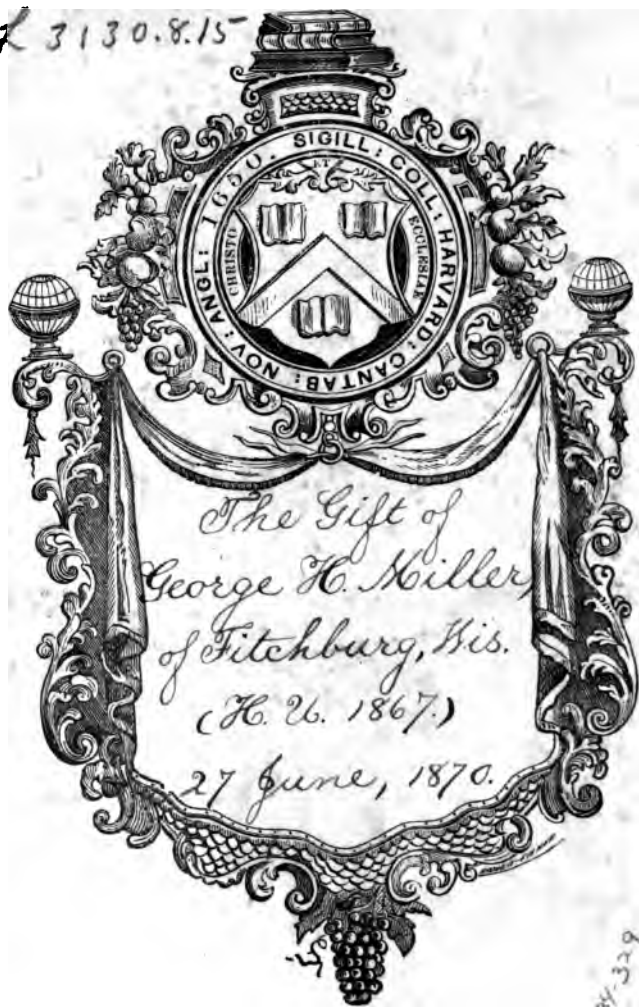 3130.8.15
SIGILL : COLL : HARVARD : CANTAB : NOV : ANGL : 1650.
ET
CHRISTO
ECCLESIAE
The Gift of
George H. Miller,
of Fitchburg, Wis.
(H. U. 1867.)
27 June, 1870.